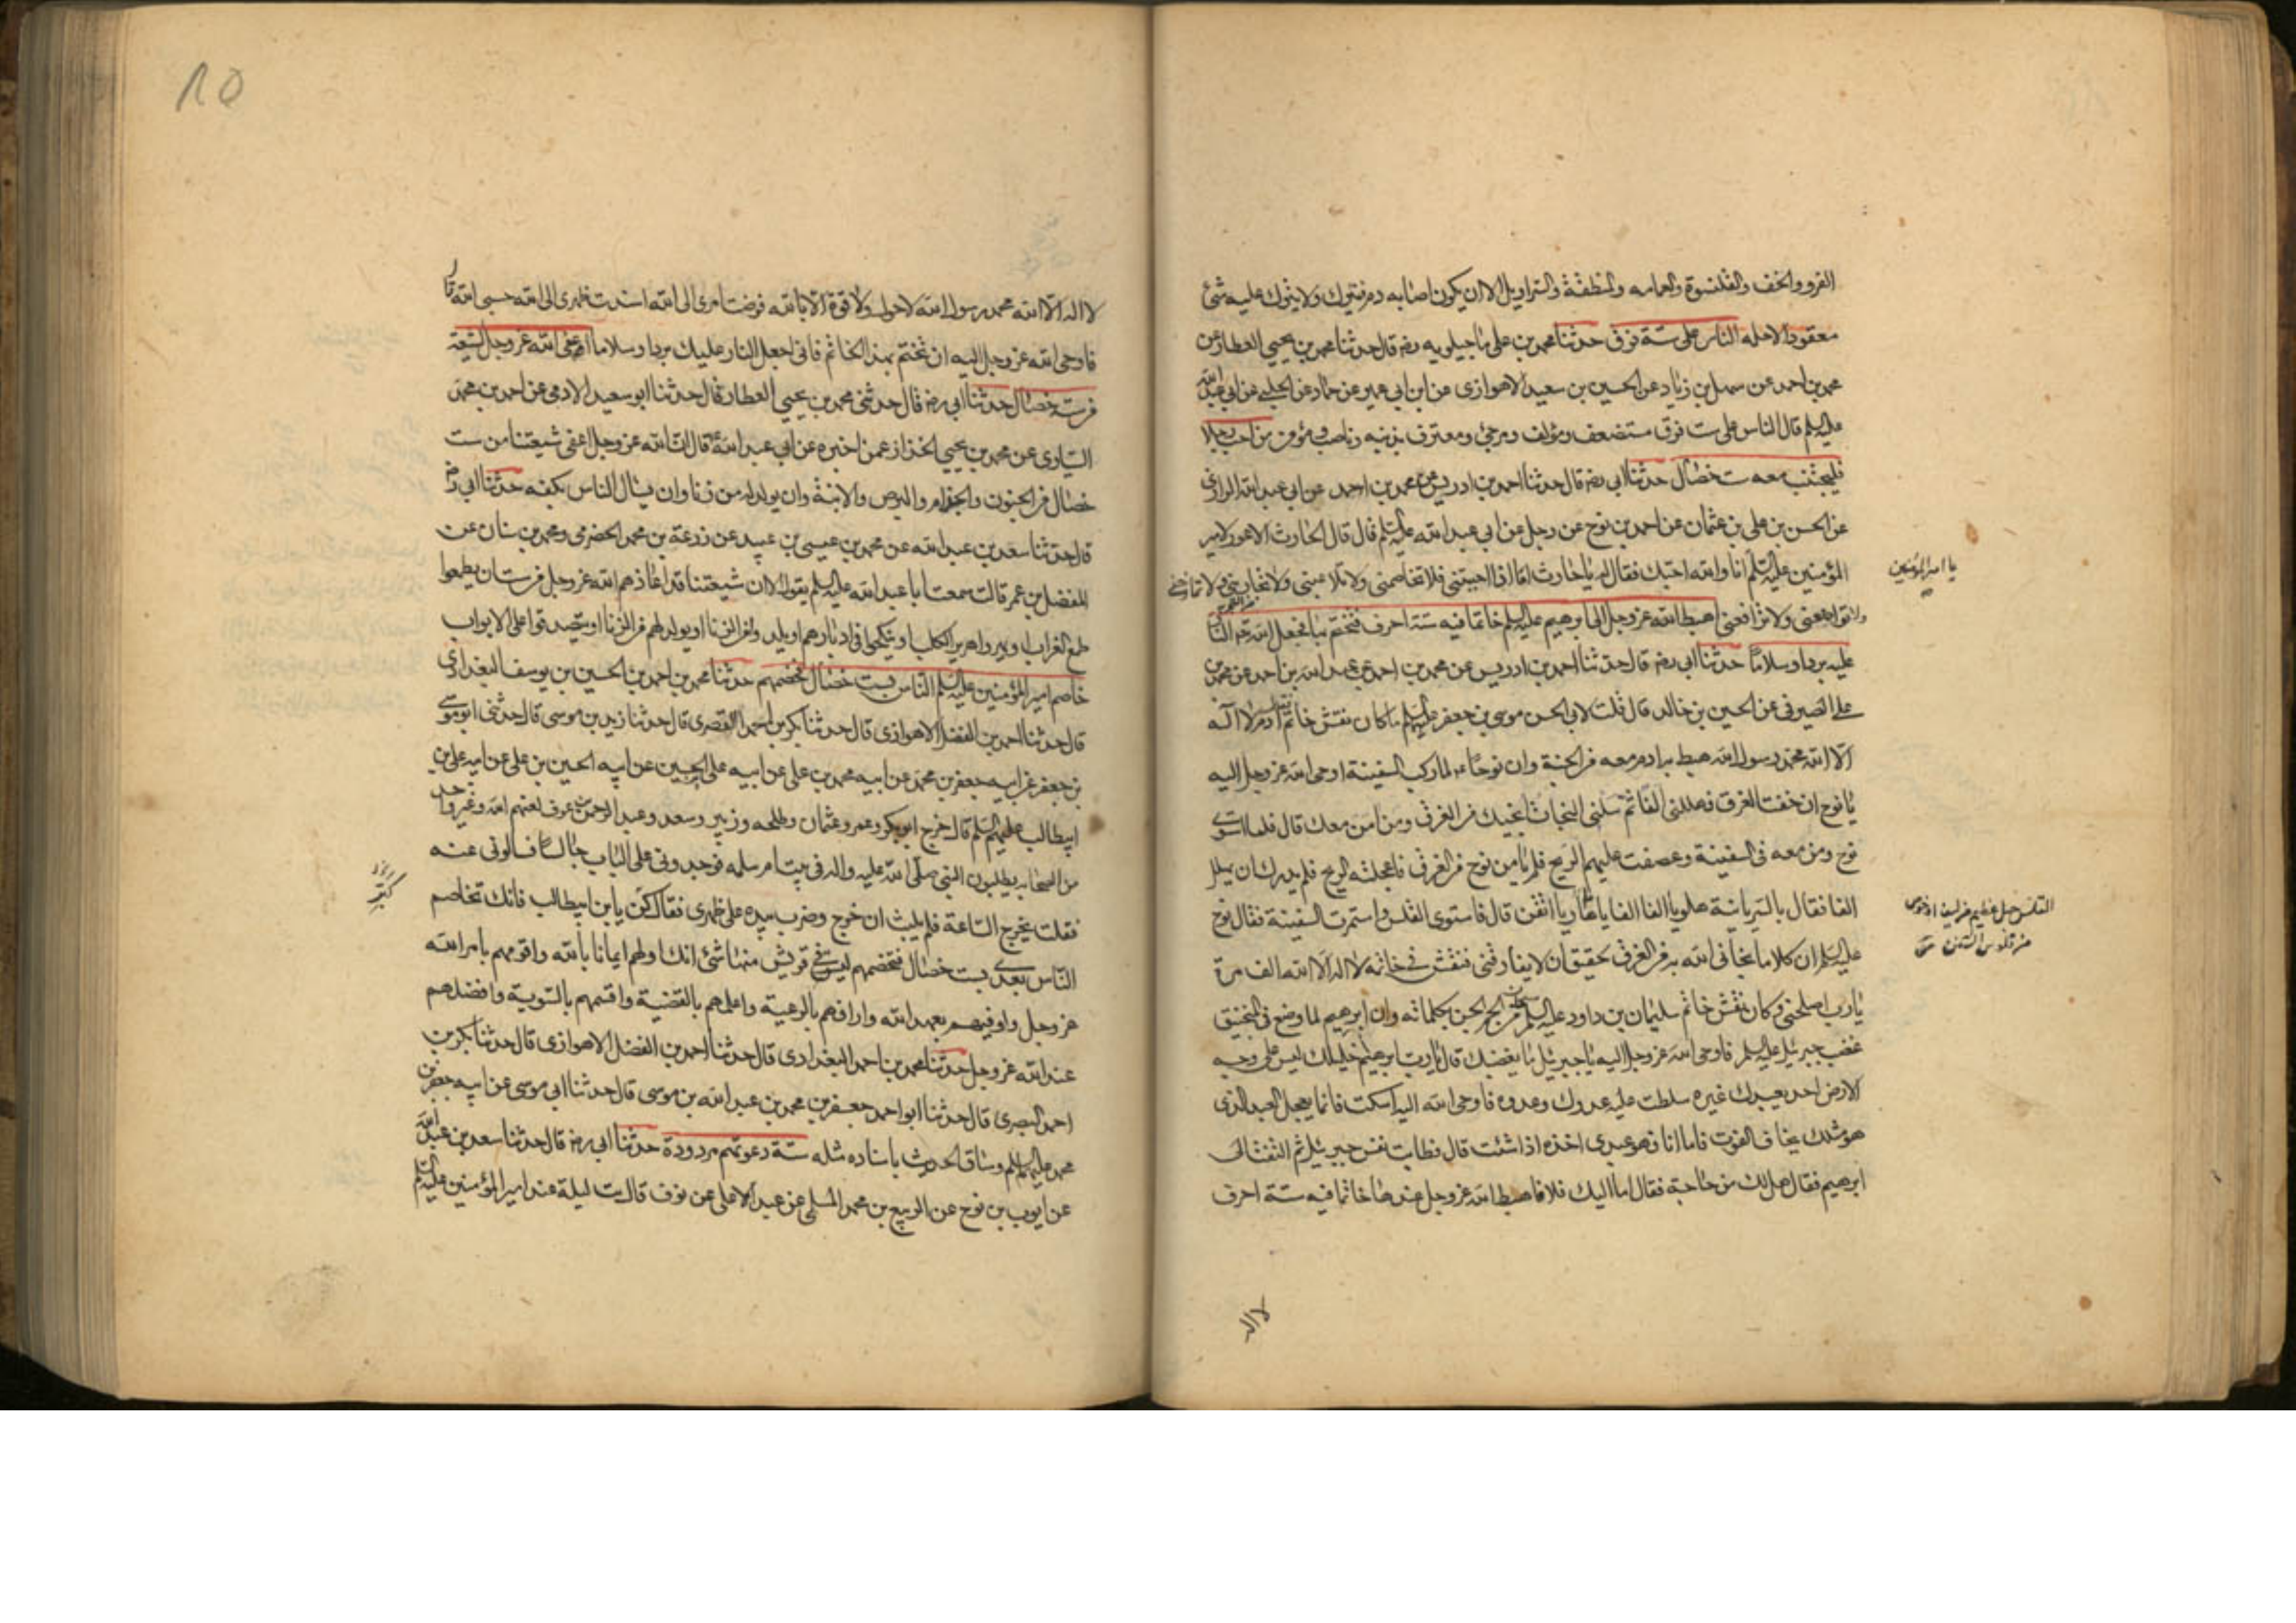 الفرو والخف والقلنسوة والعمامه والمنطقة والسراويل الا ان يكون اصابه دم فيترك ولا يترك عليه شئ
معقود الا حله الناس على ستة فرق حدثنا محمد بن على ماجيلويه رضه قال حدثنا محمد بن يحيى العطار عن
محمد بن احمد عن سهل بن زياد عن الحسين بن سعيد الاهوازى عن ابن ابى عمير عن حماد عن الحلبى عن ابى عبد الله
عليه السلم قال الناس على ست فرق مستضعف ومؤلف ومرجئ ومعترف بذنبه وناصب ومؤمن من احب رجلا
فليجتنب معه ست خصال حدثنا ابى رضه قال حدثنا احمد بن ادريس عن محمد بن احمد عن ابى عبد الله الرازى
عن الحسن بن على بن عثمان عن احمد بن نوح عن رجل عن ابى عبد الله عليه السلم قال قال الحارث الاعور لامير
المؤمنين عليه السلم انا والله احبك فقال له يا حارث اما اذا احببتنى فلا تخاصمنى ولا تلاعبنى ولا تجارينى ولا تمازحنى
يا امير المؤمنين
ولا تواضعنى ولا ترافعنى اهبط الله عز وجل الى ابرهيم عليه السلم خاتما فيه ستة احرف فتختم به فجعل الله عز وجل النار
عليه بردا وسلاما حدثنا ابى رضه قال حدثنا احمد بن ادريس عن محمد بن احمد عن عبد الله بن احمد عن محمد بن
على الصيرفى عن الحسين بن خالد قال قلت لابى الحسن موسى بن جعفر عليه السلم ما كان نقش خاتم ادم لا اله
الا الله محمد رسول الله هبط به ادم معه من الجنة وان نوحا ع لما ركب السفينة اوحى الله عز وجل اليه
يا نوح ان خفت الغرق فهللنى الفا ثم سلنى النجاة انجيك من الغرق ومن امن معك قال فلما استوى
نوح ومن معه فى السفينة وعصفت عليهم الريح فلم يامن نوح من الغرق فاعجلته الريح فلم يدرك ان يهلل
الفا فقال بالسريانية هلويا الفا الفا يا ماريا اتقن قال فاستوى القلس واستمرت السفينة فقال نوح
عليه السلم ان كلاما نجانى الله به من الغرق لحقيق ان لا يفارقنى فنقش فى خاتمه لا اله الا الله الف مرة
يا رب اصلحنى وكان نقش خاتم سليمان بن داود عليه السلم سبحان من الجم الجن بكلماته وان ابرهيم لما وضع فى المنجنيق
غضب جبرئيل عليه السلم فاوحى الله عز وجل اليه يا جبرئيل ما يغضبك قال يا رب ابرهيم خليلك ليس على وجه
الارض احد يعبدك غيره سلطت عليه عدوك وعدوه فاوحى الله اليه اسكت فانما يعجل العبد الذى
هو مثلك يخاف الفوت فاما انا فهو عبدى اخذه اذا شئت قال فطابت نفس جبرئيل ثم التفت الى
ابرهيم فقال هل لك من حاجة فقال اما اليك فلا فاهبط الله عز وجل عندها خاتما فيه ستة احرف
لا اله
10
لا اله الا الله محمد رسول الله لا حول ولا قوة الا بالله فوضت امرى الى الله اسندت ظهرى الى الله حسبى الله قال
فاوحى الله عز وجل اليه ان تختم بهذا الخاتم فانى اجعل النار عليك بردا وسلاما اعفى الله عز وجل الشيعة
من ستة خصال حدثنا ابى رضه قال حدثنى محمد بن يحيى العطار قال حدثنا ابو سعيد الادمى عن احمد بن محمد
السيارى عن محمد بن يحيى الخزاز عمن اخبره عن ابى عبد الله ع قال ان الله عز وجل اعفى شيعتنا من ست
خصال من الجنون والجذام والبرص والابنة وان يولد له من زنا وان يسال الناس بكفه حدثنا ابى رضه
قال حدثنا سعد بن عبد الله عن محمد بن عيسى بن عبيد عن زرعة بن محمد الحضرمى ومحمد بن سنان عن
المفضل بن عمر قال سمعت ابا عبد الله عليه السلم يقول الا ان شيعتنا قد اعاذهم الله عز وجل من ست ان يطمعوا
طمع الغراب او يهروا هرير الكلب او ينكحوا فى ادبارهم او يلدوا من الزنا او يولد لهم من الزنا او يتصدقوا على الابواب
خاصم امير المؤمنين عليه السلم الناس بست خصال فخصمهم حدثنا محمد بن احمد بن الحسين بن يوسف البغدادى
قال حدثنا احمد بن الفضل الاهوازى قال حدثنا بكر بن احمد القصرى قال حدثنا زيد بن موسى قال حدثنى ابى موسى
بن جعفر عن ابيه جعفر بن محمد عن ابيه محمد بن على عن ابيه على بن الحسين عن ابيه الحسين بن على عن ابيه على بن
ابيطالب عليهم السلم قال خرج ابو بكر وعمر وعثمان وطلحه وزبير وسعد وعبد الرحمن بن عوف لعنهم الله وغير واحد
من الصحابه يطلبون النبى صلى الله عليه واله فى بيت ام سلمه فوجدونى على الباب جالسا فسالونى عنه
فقلت يخرج الساعة فلم يلبث ان خرج وضرب بيده على ظهرى فقال كبر يا بن ابيطالب فانك تخاصم
الناس بعدى بست خصال فتخصمهم ليس فى قريش منها شئ انك اولهم ايمانا بالله واقومهم بامر الله
عز وجل واوفيهم بعهد الله وارافهم بالرعية واعلمهم بالقضية واقسمهم بالسوية وافضلهم
عند الله عز وجل حدثنا محمد بن احمد البغدادى قال حدثنا احمد بن الفضل الاهوازى قال حدثنا بكر بن
احمد البصرى قال حدثنا ابو احمد جعفر بن محمد بن عبد الله بن موسى قال حدثنا ابى موسى عن ابيه جعفر بن
محمد عليهم السلم وساق الحديث باسناده مثله ستة دعوتهم مردودة حدثنا ابى رضه قال حدثنا سعد بن عبد الله
عن ايوب بن نوح عن الربيع بن محمد المسلى عن عبد الاعلى عن نوف قال بت ليلة عند امير المؤمنين عليه السلم